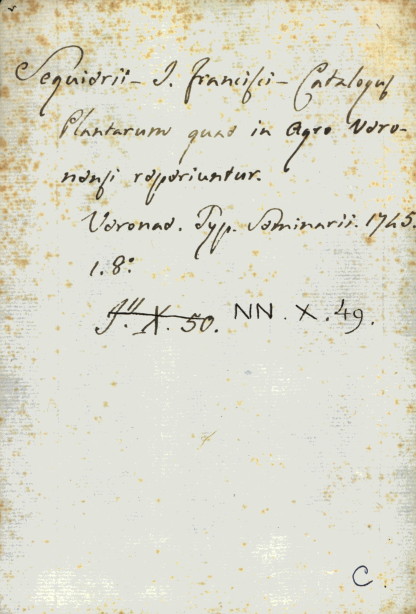 Seguierii - J. Francisci - Catalogus
Plantarum quae in Agro Vero-
nensi reperiuntur.
Veronae. Typ. Seminarii. 1745.
1. 8.º
J." X. 50. NN. X. 49.
C